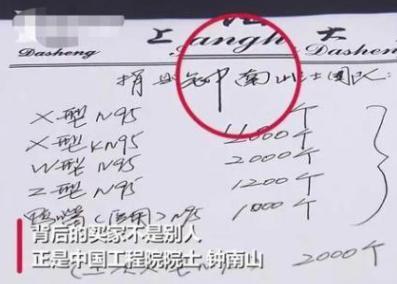 上 大
Dasheng angh Dasheng
钟南山院士团队:
X型 N95 个
X型 KN95 2000个
W型 N95 2000个
Z型 N95 1200个
鸭嘴(医用)N95 1000个
背后的买家不是别人
正是中国工程院院士 钟南山
2000个